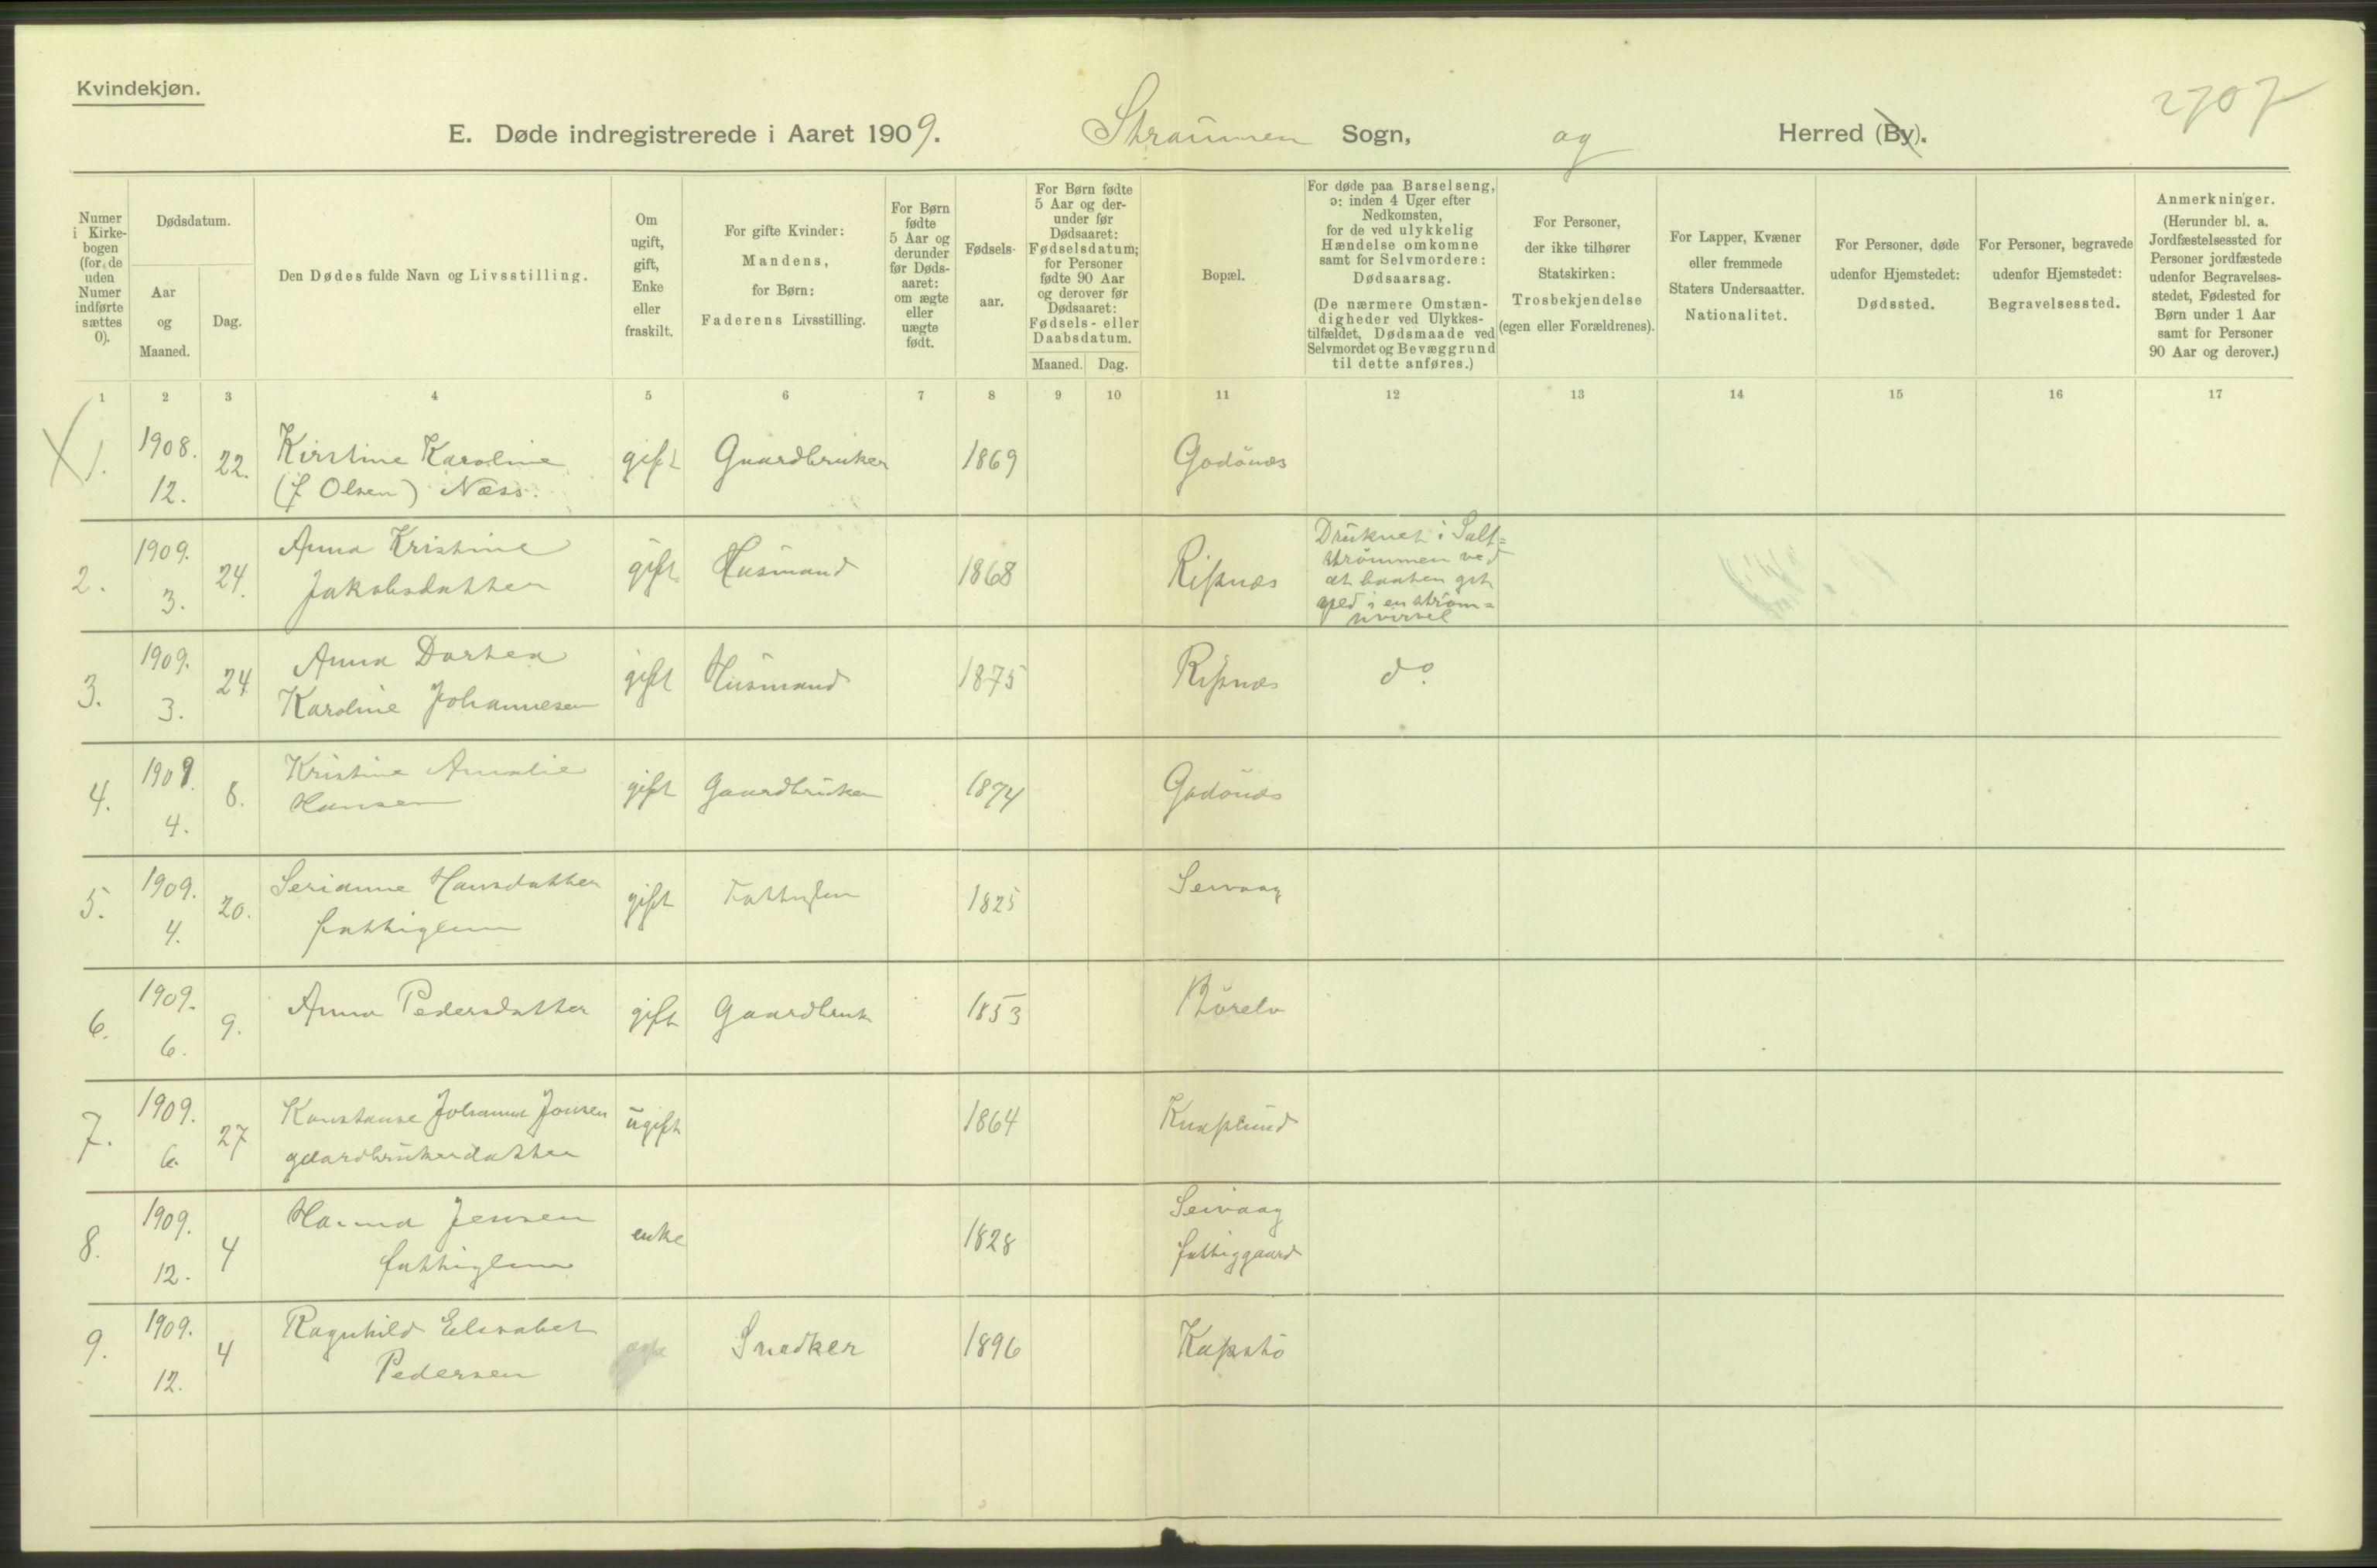 Kvindekjøn.
2707
E. Døde indregistrerede i Aaret 1909. Straumen Sogn, og Herred (By).
Numer i Kirkebogen (for de uden Numer indførte sættes 0).
Dødsdatum.
Aar og Maaned.
Dag.
Den Dødes fulde Navn og Livsstilling.
Om ugift, gift, Enke eller fraskilt.
For gifte Kvinder: Mandens, for Børn: Faderens Livsstilling.
For Børn fødte 5 Aar og derunder før Dødsaaret: om ægte eller uægte født.
Fødselsaar.
For Børn fødte 5 Aar og derunder før Dødsaaret: Fødselsdatum; for Personer fødte 90 Aar og derover før Dødsaaret: Fødsels- eller Daabsdatum.
Maaned. Dag.
Bopæl.
For døde paa Barselseng, ɔ: inden 4 Uger efter Nedkomsten, for de ved ulykkelig Hændelse omkomne samt for Selvmordere: Dødsaarsag.
(De nærmere Omstændigheder ved Ulykkestilfældet, Dødsmaade ved Selvmordet og Bevæggrund til dette anføres.)
For Personer, der ikke tilhører Statskirken: Trosbekjendelse (egen eller Forældrenes).
For Lapper, Kvæner eller fremmede Staters Undersaatter. Nationalitet.
For Personer, døde udenfor Hjemstedet: Dødssted.
For Personer, begravede udenfor Hjemstedet: Begravelsessted.
Anmerkninger.
(Herunder bl. a. Jordfæstelsessted for Personer jordfæstede udenfor Begravelsesstedet, Fødested for Børn under 1 Aar samt for Personer 90 Aar og derover.)
1 2 3 4 5 6 7 8 9 10 11 12 13 14 15 16 17
1. 1908. 12. 22. Kirstine Karoline
(f Olsen) Næss. gift Gaardbruker 1869 Godönæs
2. 1909. 3. 24. Anna Kristine
Jakobsdatter gift Husmand 1868 Ripnæs
Druknet i Salt=
strömmen ved
at baaten gik
ned i en ström=
hvirvel
3. 1909. 3. 24 Anna Dortea
Karoline Johannesen gift Husmand 1875 Ripnæs do.
4. 1909. 4. 8. Kristine Amalie
Hansen gift Gaardbruker 1874 Godönæs
5. 1909. 4. 20. Serianne Hansdatter
fattiglem gift Fattiglem 1825 Seivaag
6. 1909. 6. 9. Anna Pedersdatter gift Gaardbruk 1853 Börelv
7. 1909. 6. 27 Konstanse Johanna Jonsen
gaardbrukerdatter ugift 1864 Knaplund
8. 1909. 12. 4 Hanna Jensen
fattiglem enke 1828 Seivaag
fattiggaard
9. 1909. 12. 4 Ragnhild Elisabet
Pedersen Snedker 1896 Kapstö